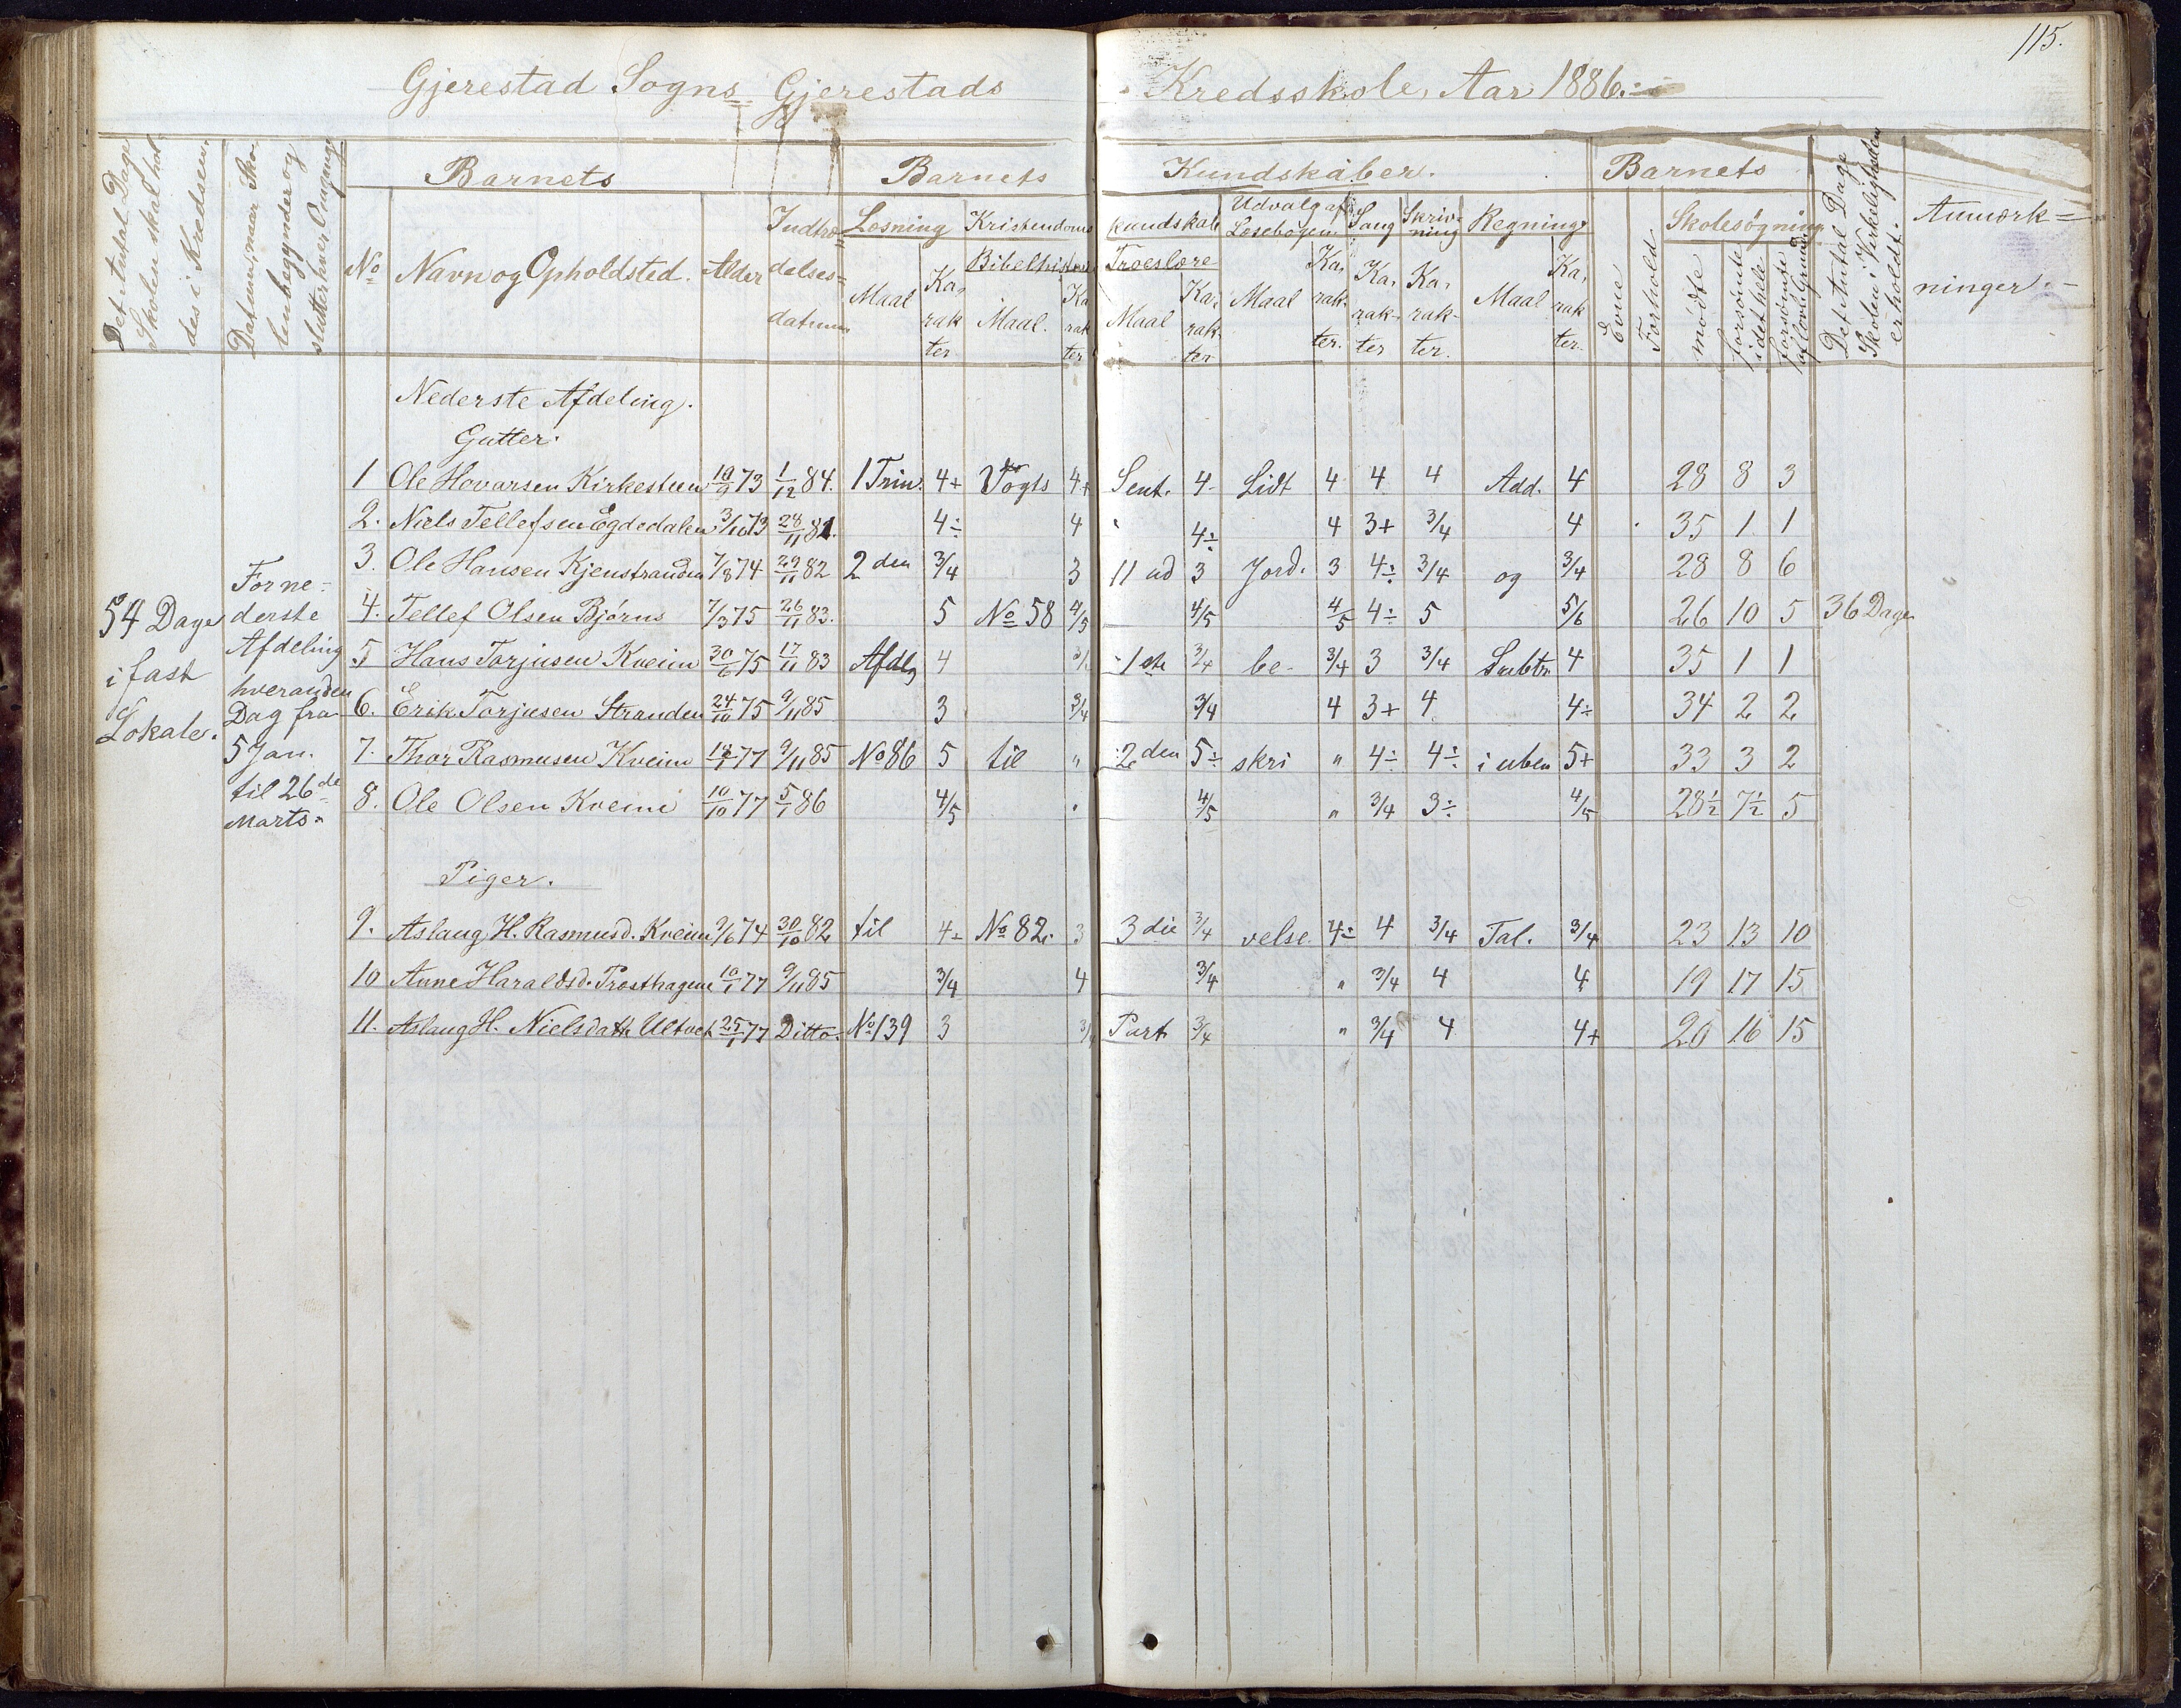 115.
Gjerestad Sogns Gjerestads Kredsskole, Aar 1886.
Det Antal Dage Skolen skal holdes i Kredsen.
Datum, naar Skolen begynder og slutter hver Omgang
Barnets
No
Navn og Opholdsted.
Alder
Indtrædelses=datum
Barnets Kundskaber.
Læsning
Maal
Karakter
Kristendomskundskab
Bibelhistorie
Maal.
Karakter
Troeslære
Maal
Karakter
Udvalg af Læsebogen
Maal
Karakter.
Sang
Karakter
Skrivning
Karakter.
Regning
Maal
Karakter.
Barnets
Evne
Forhold
Skolesøgning
mødte
forsømte i det hele
forsømte af lovl. Grund
Det Antal Dage Skolen i Virkeligheden er holdt.
Anmærkninger.
Nederste Afdeling.
Gutter.
1 Ole Hovarsen Kirkesteen 10/9 73 1/12 84. 1 Trin. 4+ Vogts 4+ Sent. 4- Lidt 4 4 4 Add. 4 28 8 3
2. Niels Tellefsen Egdedalen 3/10 73 28/11 81. 4÷ 4 " 4÷ 4 3+ 3/4 4 35 1 1
3. Ole Hansen Kjenstranden 7/8 74 29/11 82 2den 3/4 3 11 ud 3 Jord. 3 4÷ 3/4 og 3/4 28 8 6
4. Tellef Olsen Bjørns 7/3 75 26/11 83. 5 No 58 4/5 4/5 4/5 4÷ 5 5/6 26 10 5 36 Dage
5 Hans Torjusen Kveim 30/6 75 17/11 83 Afdlg 4 1ste 3/4 be- 3/4 3 3/4 Subtr. 4 35 1 1
6. Erik Torjusen Stranden 24/10 75 9/11 85 3 3/4 3/4 4 3+ 4 4÷ 34 2 2
7. Thor Rasmusen Kveim 77 9/11 85 No 86 5 til " 2den 5÷ skri " 4÷ 4÷ i uben 5+ 33 3 2
8. Ole Olsen Kveim 10/10 77 5/1 86 4/5 " 4/5 " 3/4 3÷ 4/5 28½ 7½ 5
54 Dage
i fast
Lokale.
For ne-
derste
Afdeling
hveranden
Dag fra
5 Jan.
til 26de
Marts.
Piger.
9. Aslaug H. Rasmusd. Kveim 9/6 74 30/10 82 til 4÷ No 82. 3 3die 3/4 velse 4÷ 4 3/4 Tal. 3/4 23 13 10
10 Anne Haraldsd. Prosthagene 10/1 77 9/11 85 3/4 4 3/4 " 3/4 4 4 19 17 15
11. Aslaug H. Nielsdatt. Ultvet 25/1 77 Ditto. No 139 3 3/4 Part 3/4 " 3/4 4 4+ 20 16 15